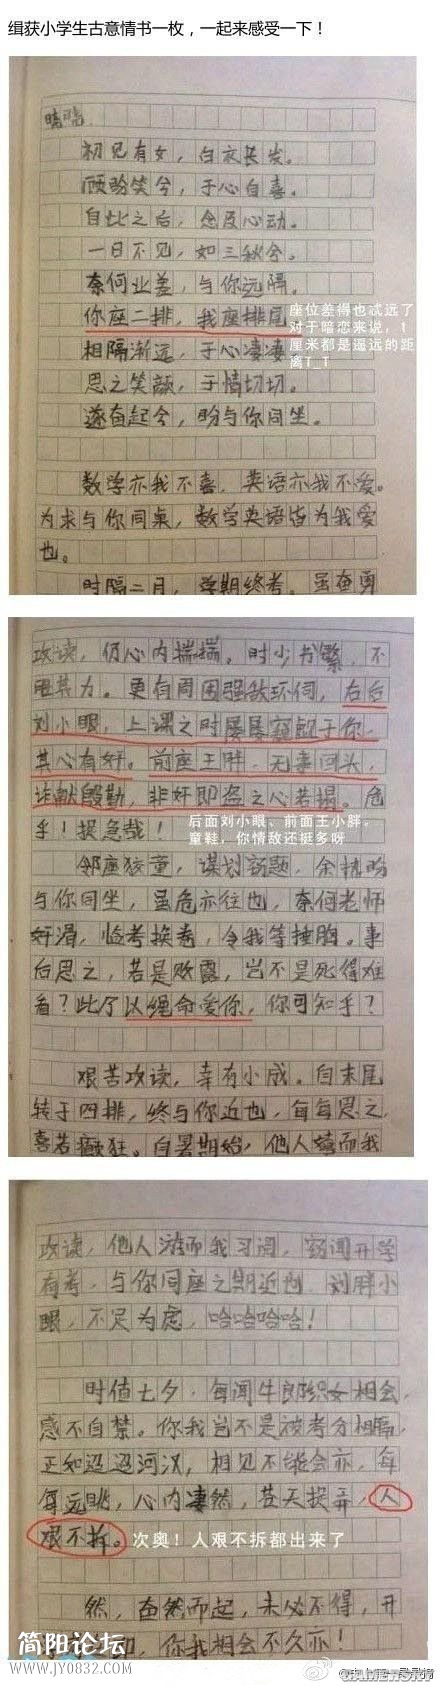 缉获小学生古意情书一枚，一起来感受一下！
初见有女，白衣长发。
顾盼笑兮，于心自喜。
自此之后，念及心动。
一日不见，如三秋兮。
奈何业差，与你远隔。
你座二排，我座排尾
座位差得也忒远了
对于暗恋来说，1
厘米都是遥远的距
离T_T
相隔渐远，于心凄凄
思之笑颜，于情切切。
遂奋起兮，盼与你同坐。
数学亦我不喜，英语亦我不爱。
为求与你同桌，数学英语皆为我爱
也。
时隔二月，学期终考。虽奋勇
攻读，仍心内揣揣。时少书繁，不
胜其力。更有周围强敌环伺，右后
刘小眼，上课之时屡屡窥觊于你，
其心有奸。前座王胖，无事回头，
诈献殷勤，非奸即盗之心若揭。危
乎！提急哉！
后面刘小眼、前面王小胖。
童鞋，你情敌还挺多呀
邻座狡童，谋划窃题，余犹盼
与你同坐，虽危亦往也，奈何老师
奸滑，临考换卷，令我等捶胸。事
后思之，若是败露，岂不是死得难
看？此乃以绳命爱你，你可知乎？
艰苦攻读，幸有小成。自末尾
转于四排，终与你近也，每每思之
喜若癫狂。自暑期始，他人嬉而我
攻读，他人游而我习阅，窃闻开学
有考，与你同座之期近也 刘胖小
眼，不足为虑，哈哈哈哈！
时值七夕，每闻牛郎织女相会，
感不自禁。你我岂不是被考分相隔，
正如迢迢河汉，相见不能会亦，每
每远眺，心内凄然，苍天捉弄，人
艰不拆。
次奥！人艰不拆都出来了
然，奋然而起，未必不得，开
即，你我相会不久亦！
简阳论坛
www.JY0832.com
GAMERSKY